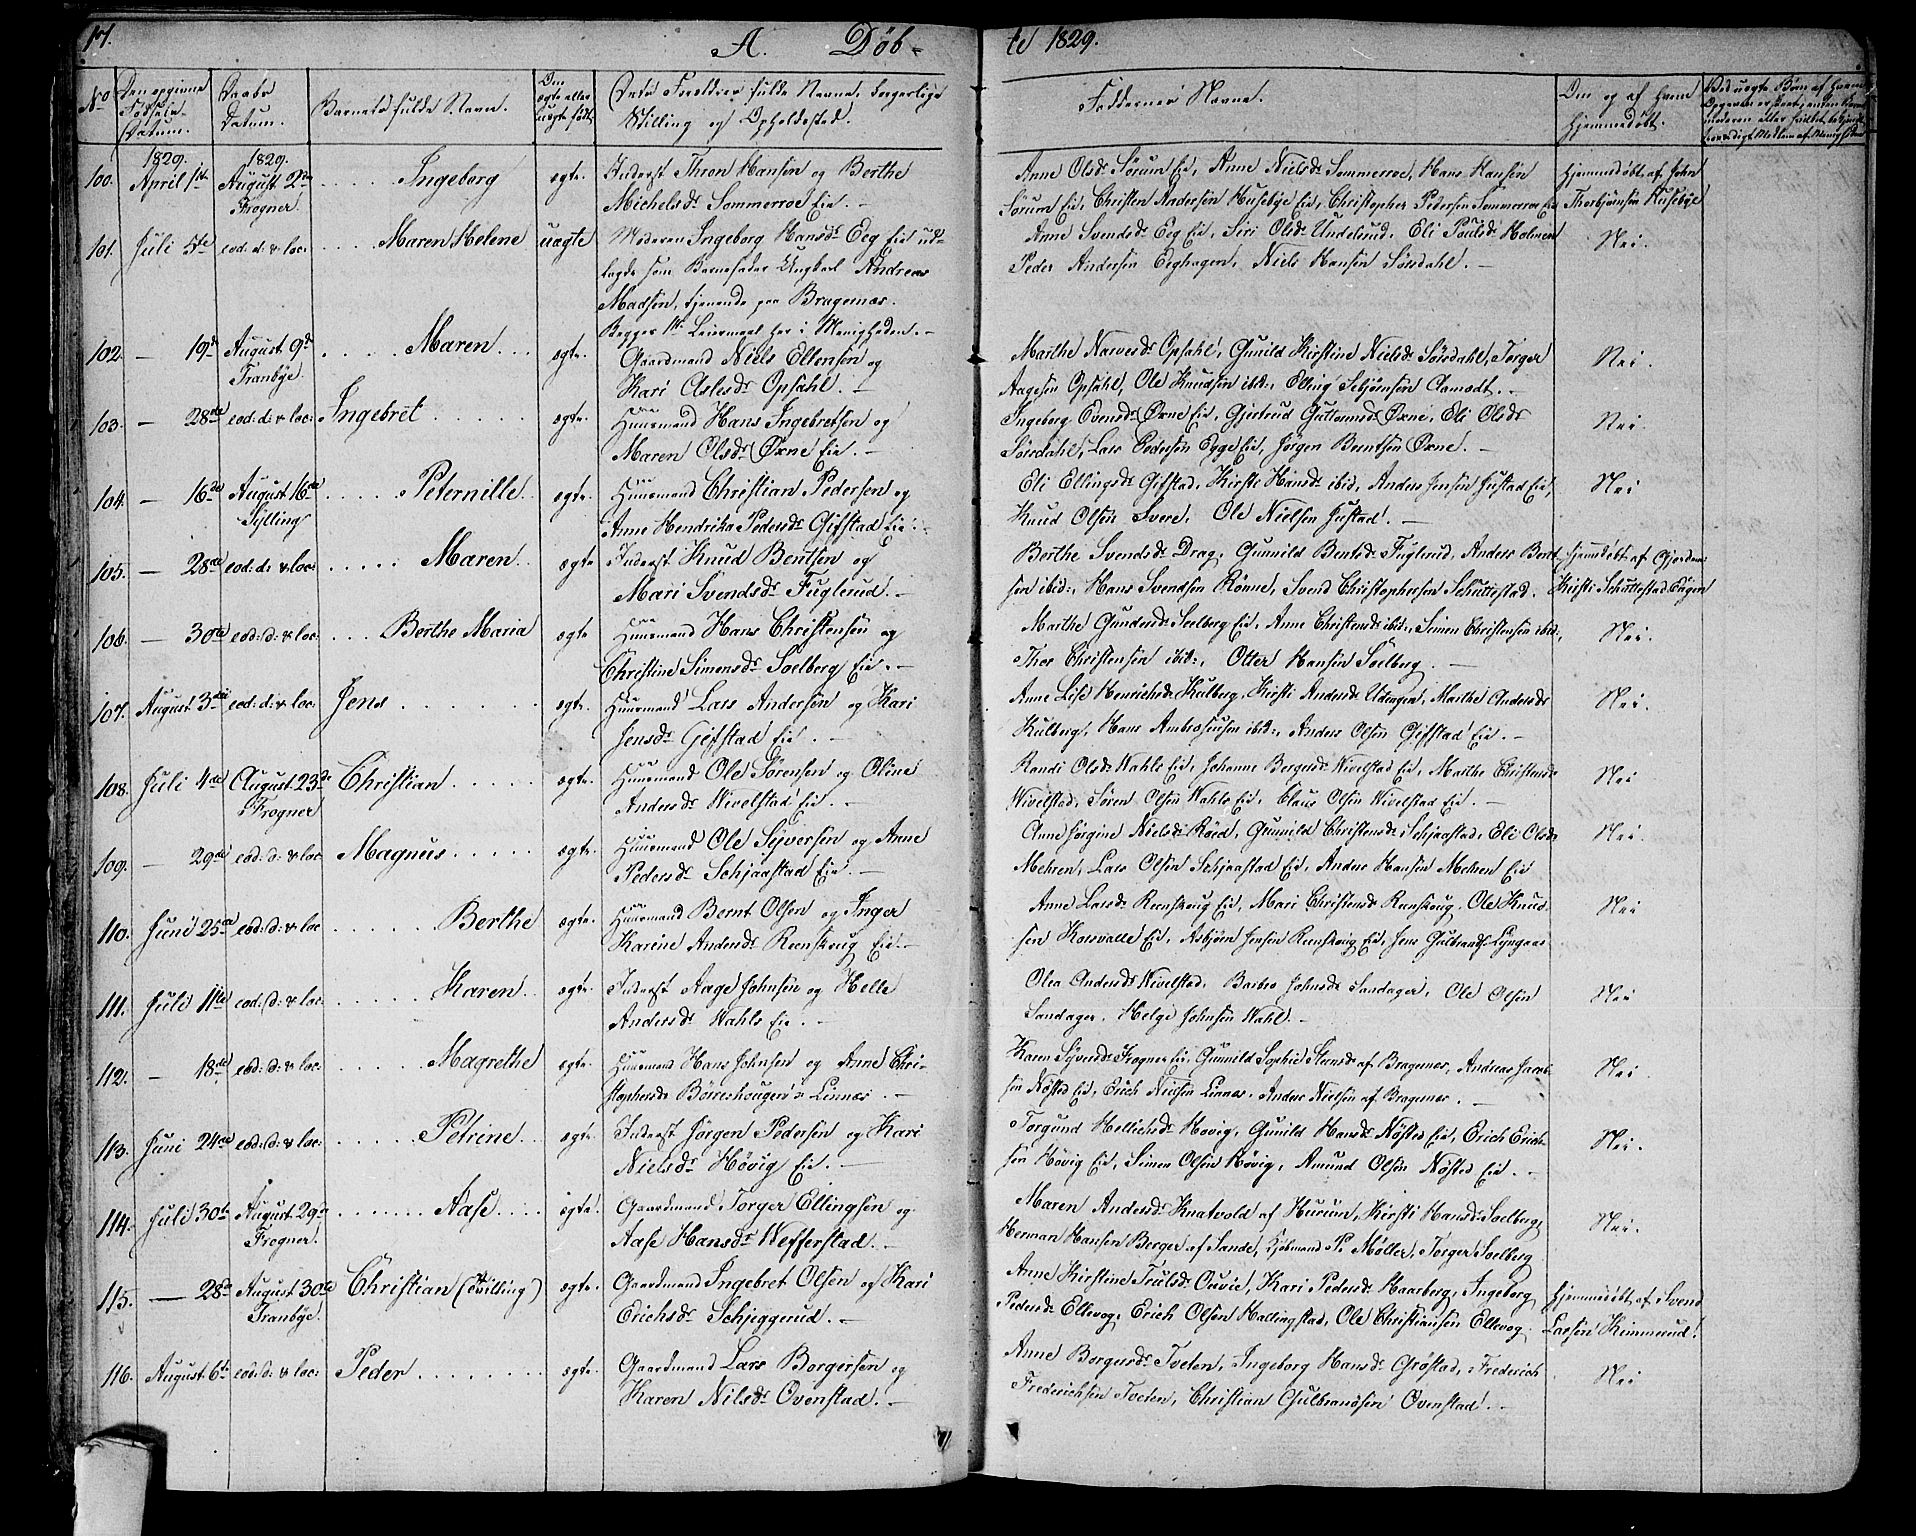 17.
A. Døb-
te 1829.
No
Den opgivne Fødsels-Datum.
Daabs Datum.
Barnets fulde Navn.
Om ægte eller uægte født.
Dets Forældres fulde Navne, borgerlige Stilling og Opholdssted.
Faddernes Navne.
Om og af hvem hjemmedøbt.
100. 1829. April 1ste 1829. August 2den Ingeborg ægte. Inderst Thron Hansen og Berthe
Frogner. Michelsdr Sommerroe Eie. -
Anne Olsdr Sørum Eie, Anne Nielsdr Sommerroe, Hans Hansen
Sørum Eie, Christen Andersen Husebye Eie, Christopher Pedersen Sommerroe Eie
Hjemmedøbt af John
Thorbjørnsen Husebye
101. Juli 5te eod: d: & loc: Maren Helene uægte Moderen Ingeborg Hansdr Eeg Eie ud-
lagde som Barnefader Ungkarl Andreas
Madsen, tjenende paa Bragernæs.
Begges 1ste Leiermaal her i Menigheden. -
Anne Svendsdr Eeg Eie, Siri Olsdr Undelsrud, Eli Poulsdr Holmen
Peder Andersen Eeghagen, Niels Hansen Sørsdahl. -
Nei.
102. - 19de August 9de Maren ægte. Gaardmand Niels Ellensen og
Tranbye. Kari Aslesdr Opsahl. -
Marthe Narvesdr Opsahl, Gunild Kirstine Nielsdr Sørsdahl, Torger
Aagesen Opsahl, Ole Knudsen ibid:, Elling Asbjørnsen Aamodt. -
Nei.
103. - 28de eod: d: & loc: Ingebret ægte. Huusmand Hans Ingebretsen og
Maren Olsdr Øxne Eie. -
Ingeborg Evensdr Øxne Eie, Gjertrud Guttormsdr Øxne, Eli Olsdr
Sørsdahl, Lars Pedersen Egge Eie, Jørgen Berntsen Øxne. -
Nei.
104. - 16de August 16de Peternille ægte. Huusmand Christian Pedersen og
Sylling Anne Hendrikka Pedersdr Gifstad Eie. -
Eli Ellingsdr Gifstad, Kirsti Hansdr ibid, Anders Jensen Justad Eie,
Knud Olsen Svere, Ole Nielsen Justad. -
Nei
105. - 28de eod: d: & loc: Maren ægte Inderst Knud Bentsen og
Mari Svendsdr Fuglerud. -
Berthe Svendsdr Drag, Gunnild Bentsdr Fuglerud, Anders Bent-
sen ibid:, Hans Svendsen Rønne, Svend Christophersen Schuttestad.
Hjemmedøbt af Gjordemo:
Kirsti Schuttestad Eugen
106. - 30te eod: d: & loc: Berthe Maria ægte Huusmand Hans Christensen og
Christine Simensdr Soelberg Eie. -
Marthe Gundersdr Soelberg Eie, Anne Christensdr ibid:, Simen Christensen ibid:,
Thor Christensen ibid:, Otter Hansen Soelberg. -
Nei.
107. August 3die eod: d: & loc: Jens ægte. Huusmand Lars Andersen og Kari
Jensdr Gifstad Eie. -
Anne Lise Henrichsdr Kulberg, Kirsti Andersdr Udengen, Marthe Andersdr
Kulberg, Hans Ambrosiusen ibid:, Anders Olsen Gifstad Eie. -
Nei.
108. Juli 4de August 23de Christian ægte. Huusmand Ole Sørensen og Oline
Frogner Andersdr Wivelstad Eie. -
Randi Olsdr Wahls Eie, Johanne Borgersdr Wivelstad Eie, Marthe Christensdr
Wivelstad, Søren Olsen Wahls Eie, Claus Olsen Wivelstad Eie. -
Nei
109. - 29de eod: d: & loc: Magnus ægte. Huusmand Ole Syversen og Anne
Pedersdr Schjaastad Eie. -
Anne Jørgine Nielsdr Røed, Gunnild Christensdr Schjaastad, Eli Olsdr
Mehren, Lars Olsen Schjaastad Eie, Anders Hansen Mehren Eie
Nei.
110. Juni 25de eod: d: & loc Berthe ægte. Huusmand Bernt Olsen og Inger
Karine Andersdr Renskoug Eie. -
Anne Larsdr Renskoug Eie, Mari Christensdr Renskoug, Ole Knud-
sen Korsvalle Eie, Asbjørn Jensen Renskoug Eie, Jens Gulbrands: Lyngaas
Nei
111. Juli 11te eod: d: & loc: Karen ægte. Inderst Aage Johnsen og Helle
Andersdr Wahls Eie. -
Olea Andersdr Wivelstad, Barbro Johnsdr Sandager, Ole Olsen
Sandager, Helge Johnsen Wahl. -
Nei
112. - 18de eod: d: & loc: Magrethe ægte. Huusmand Hans Johnsen og Anne Chri-
stophersdr Børreshougen i Linnæs. -
Karen Syversdr Frogner Eie, Gunnild Sophie Steensdr af Bragernæs, Andreas Jacob-
sen Nøsted Eie, Erich Nielsen Linnæs, Anders Nielsen af Bragernæs. -
Nei.
113. Juni 24de eod: d: & loc: Petrine ægte. Inderst Jørgen Pedersen og Kari
Nielsdr Høvig Eie. -
Torgund Hellichsdr Høvig, Gunild Hansdr Nøsted Eie, Erich Erich-
sen Høvig Eie, Simen Olsen Høvig, Amund Olsen Nøsted Eie. -
Nei.
114. Juli 30te August 29de Aase ægte. Gaardmand Torger Ellingsen og
Frogner. Aase Hansdr Wefferstad. -
Maren Andersdr Knatvold af Hurum, Kirsti Hansdr Soelberg,
Herman Hansen Berger af Sande, Kjøbmand P. Møller, Torger Soelberg.
Nei.
115. - 28de August 30te Christian (Tvilling) ægte. Gaardmand Ingebret Olsen og Kari
Tranbye. Erichsdr Schjeggerud. -
Anne Kirstine Truelsdr Ouvie, Kari Pedersdr Haarberg, Ingeborg
Pedersdr Ellevog, Erich Olsen Hallingstad, Ole Christiansen Ellevog.
Hjemmedøbt af Svend
Larsen Kimmerud.
116. August 6te eod: d: & loc: Peder ægte. Gaardmand Lars Borgersen og
Karen Nilsdr Ovenstad. -
Anne Borgersdr Tveten, Ingeborg Hansdr Grøstad, Frederich
Frederichsen Tveten, Christian Gulbrandsen Ovenstad. -
Nei